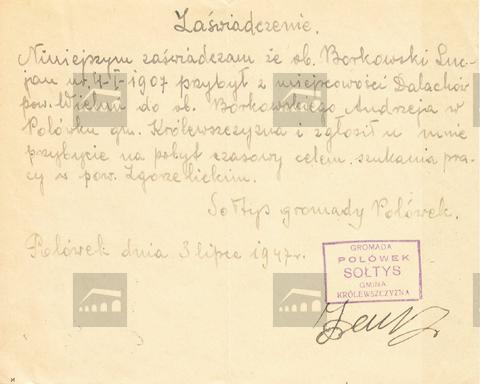 Zaświadczenie.
Niniejszym zaświadczam że ob. Borkowski Luc-
jan ur. 4-I-1907 przybył z miejscowości Dalachów
pow. Wieluń do ob. Borkowskiego Andrzeja w
Polówku gm. Królewszczyzna i zgłosił u mnie
przybycie na pobyt czasowy celem szukania pra-
cy w pow. Zgorzelickim.
Sołtys gromady Polówek.
Polówek dnia 3 lipca 1947 r.
GROMADA
POLÓWEK
SOŁTYS
GMINA
KRÓLEWSZCZYZNA